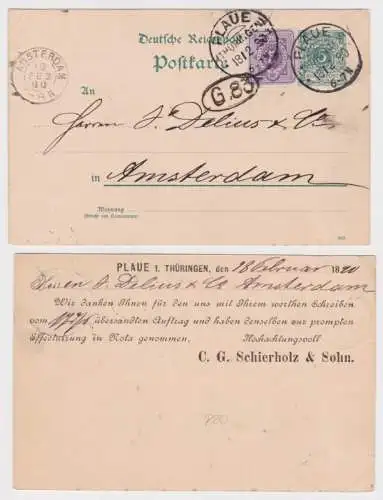 Deutsche Reichspost
Postkarte
PLAUE
THÜRINGEN
18 2
PLAUE
6-7
AMSTERDAM
G.83
An
Herren Delius & Co
in Amsterdam
Wohnung
PLAUE I. THÜRINGEN, den 18 Februar 1890
Herren Delius & Co Amsterdam
Wir danken Ihnen für den uns mit Ihrem werthen Schreiben
vom übersandten Auftrag und haben denselben zur prompten
Effectuirung in Nota genommen. Hochachtungsvoll
C. G. Schierholz & Sohn.